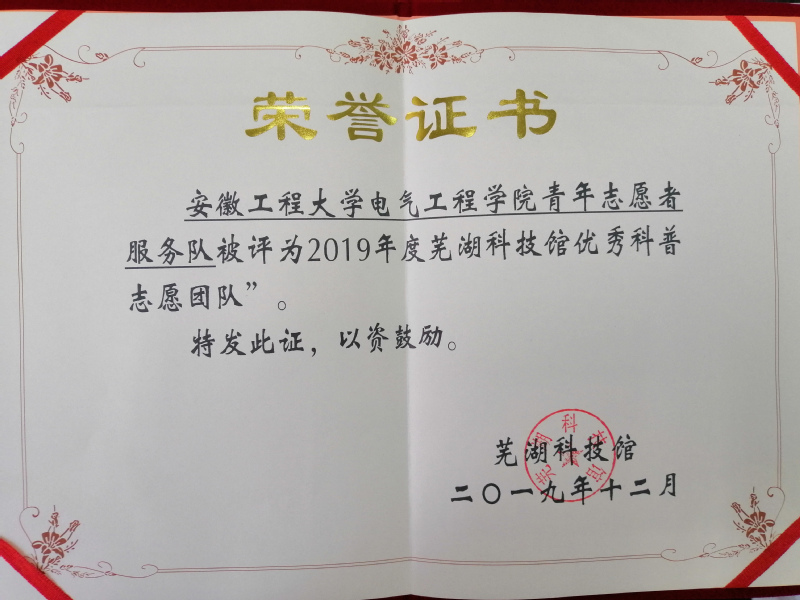 荣誉证书
安徽工程大学电气工程学院青年志愿者
服务队被评为2019年度芜湖科技馆优秀科普
志愿团队”。
特发此证，以资鼓励。
芜湖科技馆
二〇一九年十二月
芜湖科技馆